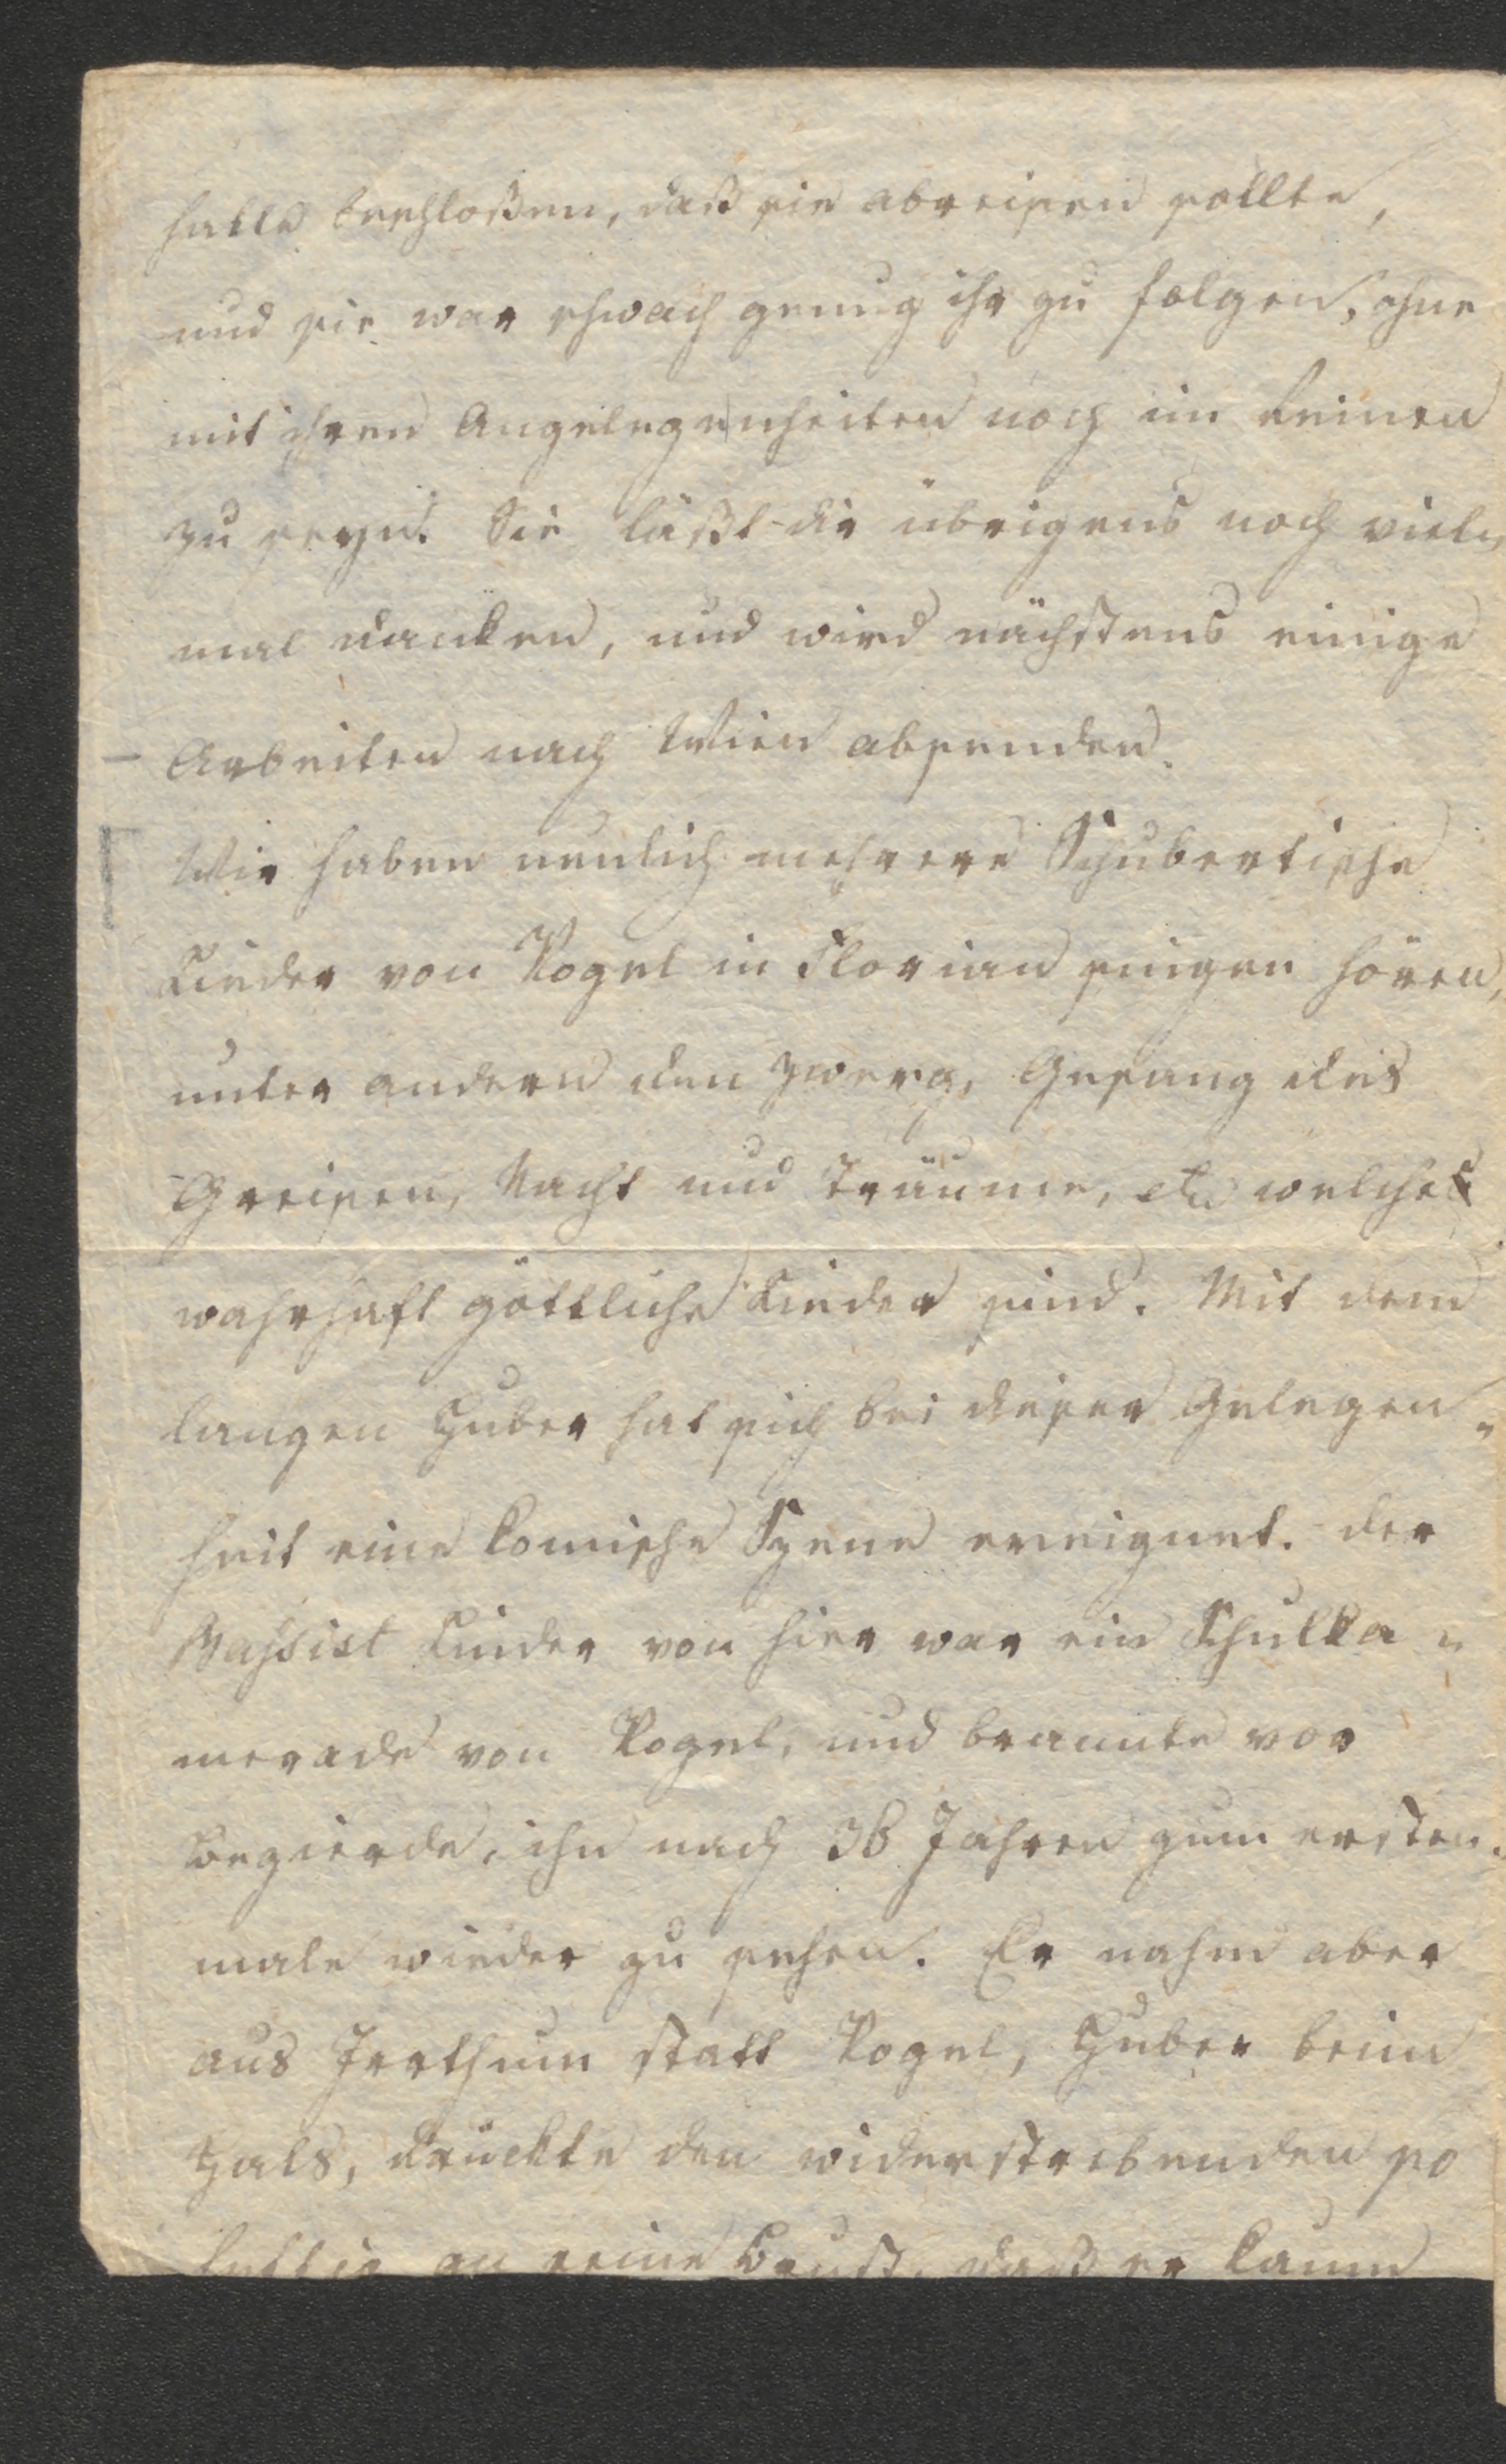 hatte beschloßen, daß sie abreisen sollte,
und sie war schwach genug ihr zu folgen, ohne
mit ihren Angelegenheiten noch im Reinen
zu seyn. Sie läßt dir übrigens noch viel„
mal danken, und wird nächstens einige
Arbeiten nach Wien absenden.
Wir haben neulich mehrere Schubertische
Lieder von Vogel in Florian singen hören,
unter andern den Zwerg, Gesang des
Greisen, Nacht und Träume, etc welches
wahrhaft göttliche Lieder sind. Mit dem
langen Huber hat sich bei dieser Gelegen„
heit eine komische Szene ereignet. Der
Bassist Linder von hier war ein Schulka„
merade von Vogel, und brannte vor
Begierde, ihn nach 36 Jahren zum ersten„
male wieder zu sehen. Er nahm aber
aus Irrthum statt Vogel, Huber beim
Hals, drückte den widerstrebenden so
heftig an seine Brust, daß er kaum